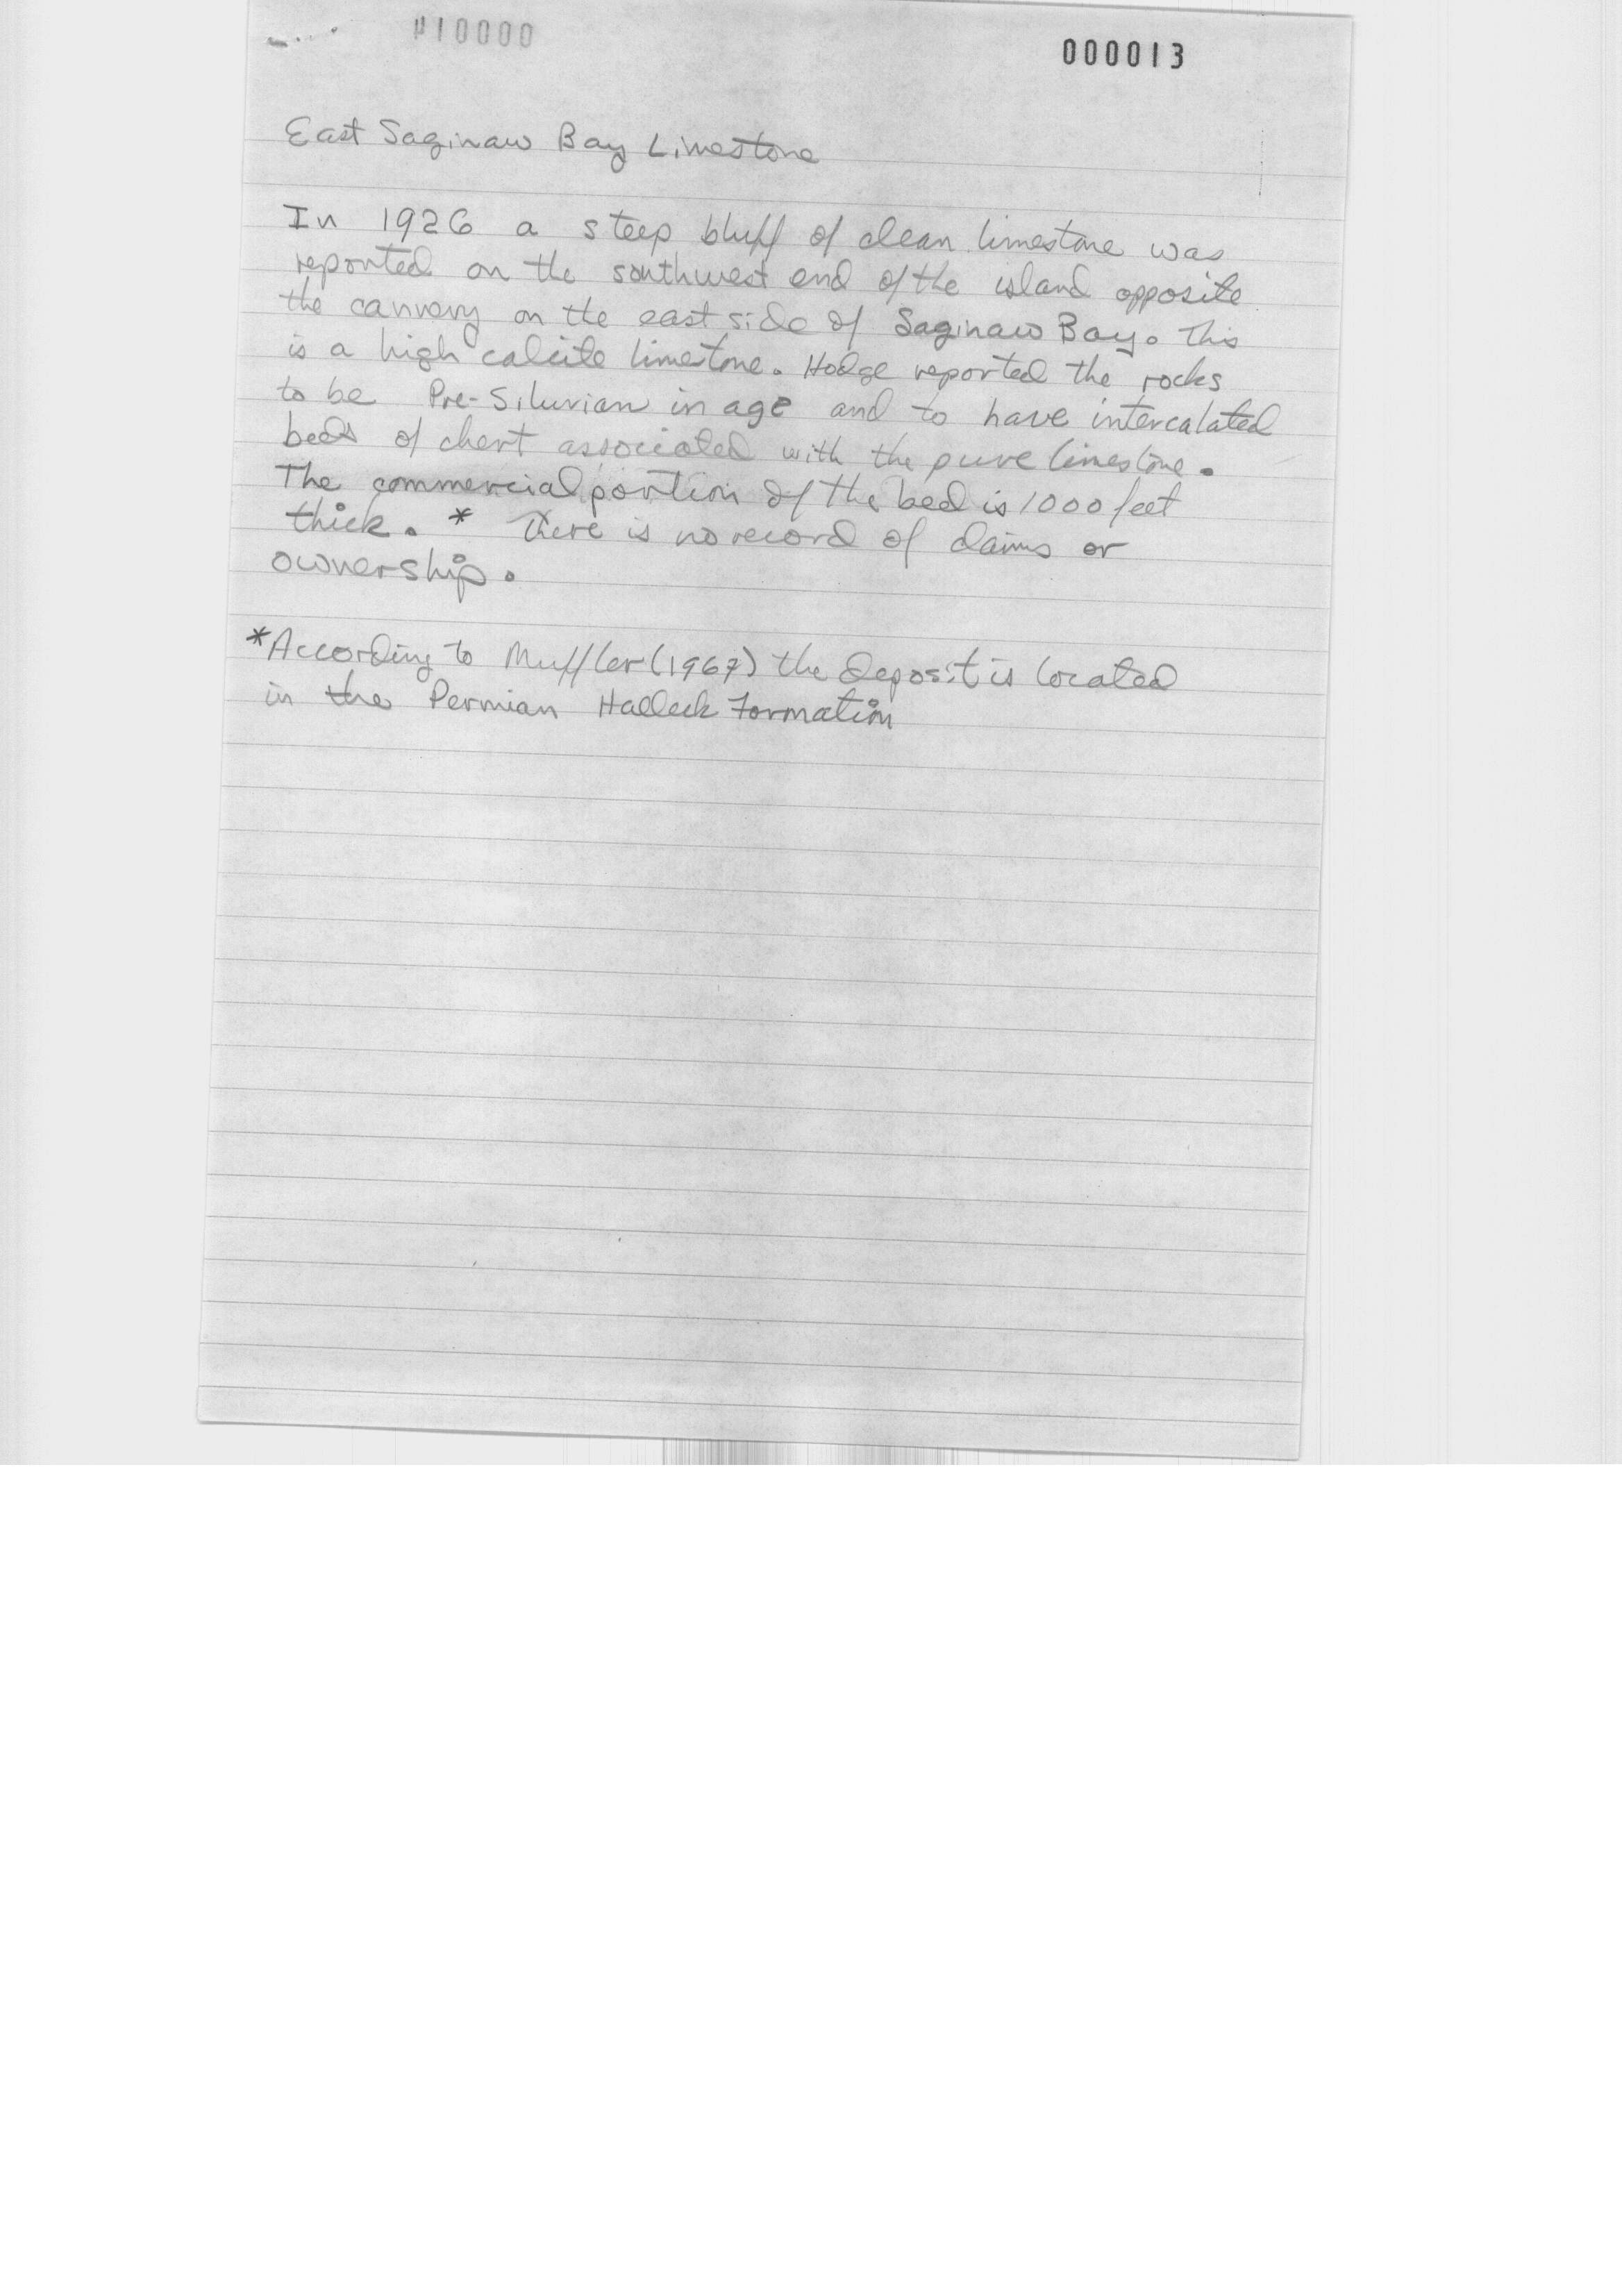 000013
East Saginaw Bay Limestone
In 1926 a steep bluff of clean limestone was
reported on the southwest end of the island opposite
the cannery on the east side of Saginaw Bay. This
is a high calcite limestone. Hodge reported the rocks
to be Pre-Silurian in age and to have intercalated
beds of chert associated with the pure limestone.
The commercial portion of the bed is 1000 feet
thick. * There is no record of claims or
ownership.
*According to Muffler (1967) the deposit is located
in the Permian Halleck Formation